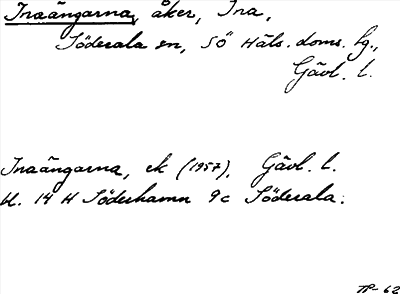 Inaängarna, åker, Ina,
Söderala sn, SÖ Häls. doms. fg.,
Gävl. l.
Inaängarna, ek (1957). Gävl. l.
bl. 14 H Söderhamn 9c Söderala.
TP- 62